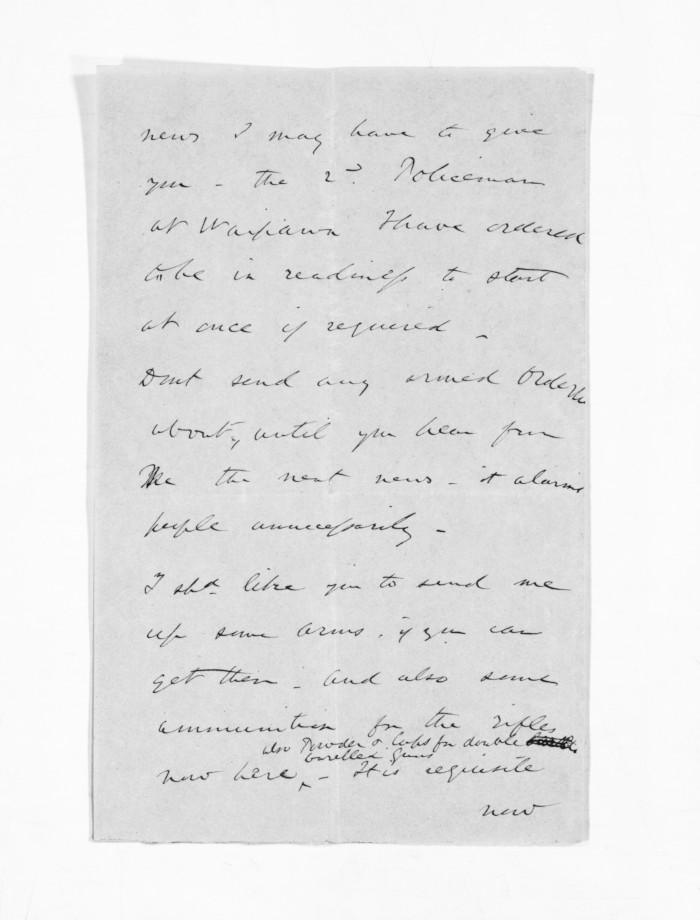 news I may have to give
you - the 2d. Policeman
at Waipawa I have ordered
to be in readiness to start
at once if required -
Dont send any armed Orderlies
about, until you hear from
me the next news - it alarms
people unnecessarily -
I shd. like you to send me
up some arms, if you can
get them - and also some
ammunition for the rifles
also Powder & Caps for double
barelled guns
now here, - It is requisite
now